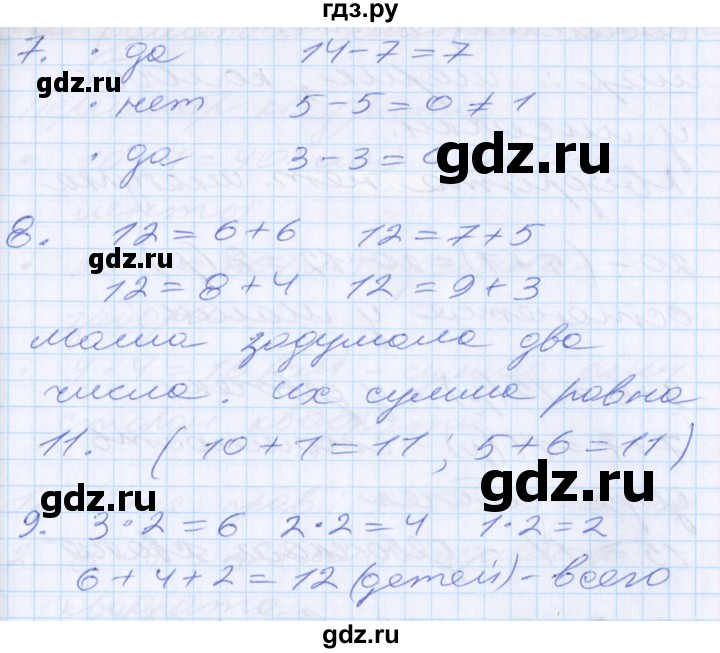 гдз.ру
7. · да 14-7=7
gdz.ru
· нет 5-5=0≠1
· да 3-3=
gdz.ru
8. 12=6+6 12=7+5
gdz.ru
12=8+4 12=9+3
Маша задумала два
числа. Их сумма равна
11. (10+1=11; 5+6=11)
gdz.ru
gdz.ru
9. 3·2=6 2·2=4 1·2=2
6+4+2=12 (детей)-всего
gdz.ru
gdz.ru